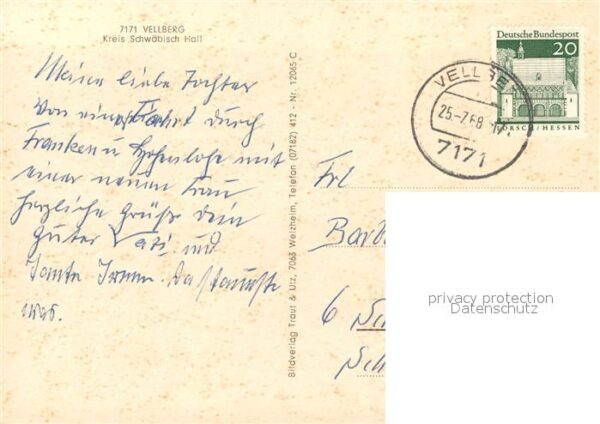 7171 VELLBERG
Kreis Schwäbisch Hall
Meine liebe Tochter
von einer Fahrt durch
Franken u Hohenlohe mit
einer neuen Frau
herzliche Grüße dein
guter Vati und
Tante Irmen. Da staunste
was.
Bildverlag Traut & Utz, 7063 Welzheim, Telefon (07182) 412 - Nr. 12065 C
Deutsche Bundespost
20
LORSCH / HESSEN
VELLBE
25.-7.68
7171
Frl
Barb
6
Sch
privacy protection
Datenschutz